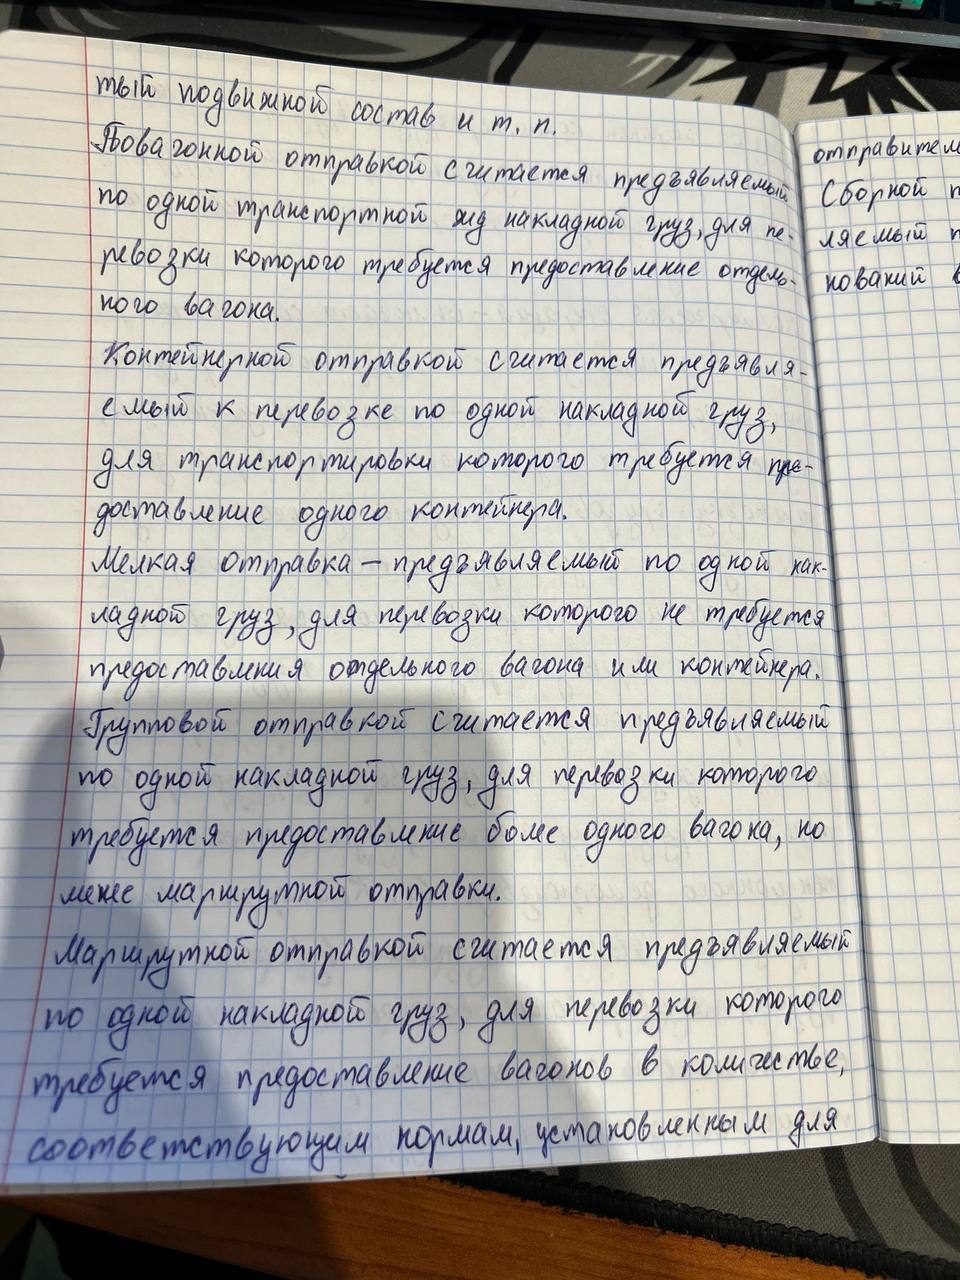 тый подвижной состав и т. п.
Повагонной отправкой считается предъявляемый
по одной транспортной жд накладной груз, для пе-
ревозки которого требуется предоставление отдель-
ного вагона.
Контейнерной отправкой считается предъявля-
емый к перевозке по одной накладной груз,
для транспортировки которого требуется пре-
доставление одного контейнера.
Мелкая отправка – предъявляемый по одной нак-
ладной груз, для перевозки которого не требуется
предоставления отдельного вагона или контейнера.
Групповой отправкой считается предъявляемый
по одной накладной груз, для перевозки которого
требуется предоставление более одного вагона, но
менее маршрутной отправки.
Маршрутной отправкой считается предъявляемый
по одной накладной груз, для перевозки которого
требуется предоставление вагонов в количестве,
соответствующим нормам, установленным для
отправител
Сборной п
ляемый п
нований в